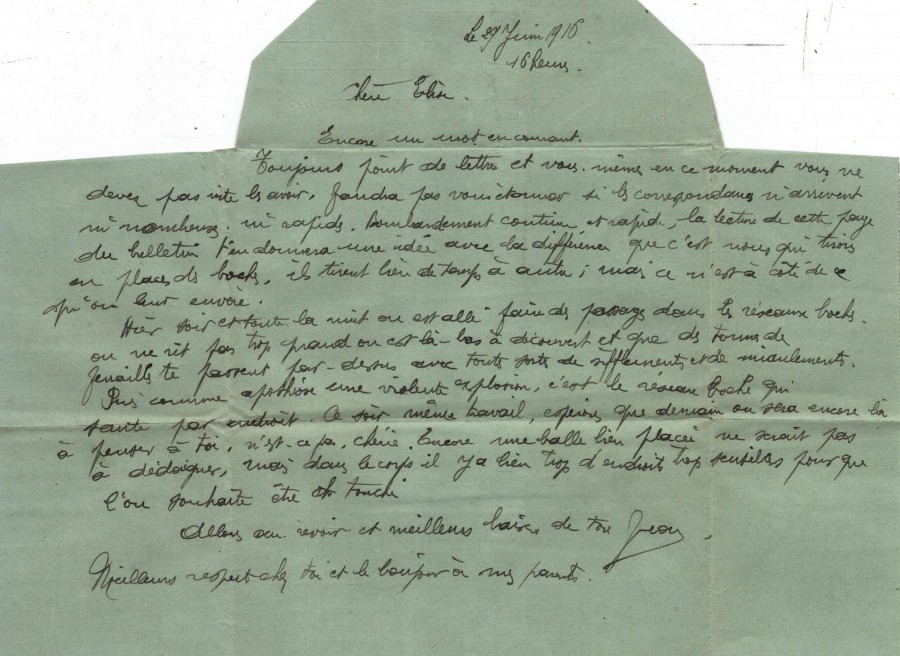 Le 29 Juin 1916.
16 heures.
Chère Elise.
Encore un mot en courant.
Toujours point de lettres et vous-mêmes en ce moment vous ne
devez pas vite les avoir. Faudra pas vous étonner si les correspondances n'arrivent
ni nombreuses ni rapides. Bombardement continu et rapide, la lecture de cette page
du bulletin t'en donnera une idée avec la différence que c'est nous qui tirons
en place des boches, ils tirent bien de temps à autre ; mais ce n'est à côté de ce
qu'on leur envoie.
Hier soir et toute la nuit on est allé faire des passages dans les réseaux boches.
on ne rit pas trop quand on est là-bas à découvert et que des tonnes de
ferraille te passent par-dessus avec toutes sortes de sifflements et de miaulements.
Puis comme apothéose une violente explosion, c'est le réseau boche qui
saute par endroit. Ce soir même travail, espérons que demain on sera encore là
à penser à toi, n'est-ce pas, chérie. Encore une balle bien placée ne serait pas
à dédaigner, mais dans le corps il y a bien trop d'endroits trop sensibles pour que
l'on souhaite être touché
Allons au revoir et meilleurs baisers de ton Jean
Meilleurs respects chez toi et le bonjour à mes parents.